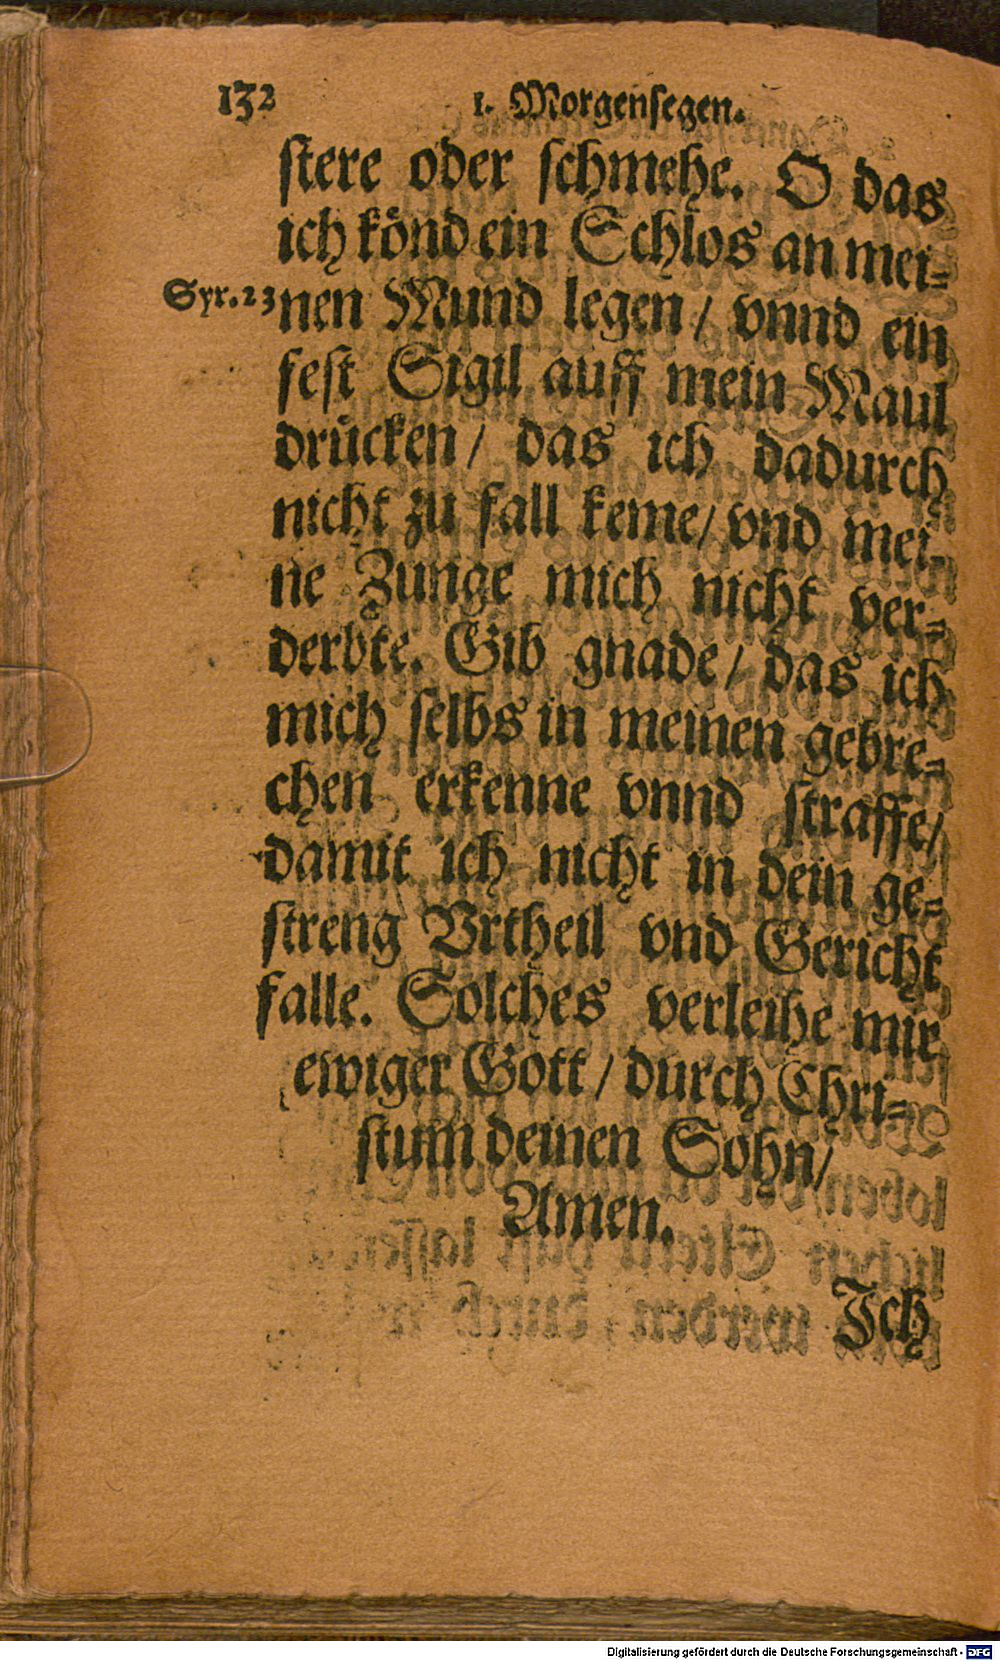 132 1. Morgensegen.
stere oder schmehe. O das
ich könd ein Schlos an mei-
Syr. 23 nen Mund legen / vnnd ein
fest Sigil auff mein Maul
drücken / das ich dadurch
nicht zu fall keme / vnd mei-
ne Zunge mich nicht ver-
derbte. Gib gnade / das ich
mich selbs in meinen gebre-
chen erkenne vnnd straffe /
damit ich nicht in dein ge-
streng Vrtheil vnd Gericht
falle. Solches verleihe mir
ewiger Gott / durch Chri-
stum deinen Sohn /
Amen.
Ich
Digitalisierung gefördert durch die Deutsche Forschungsgemeinschaft - DFG